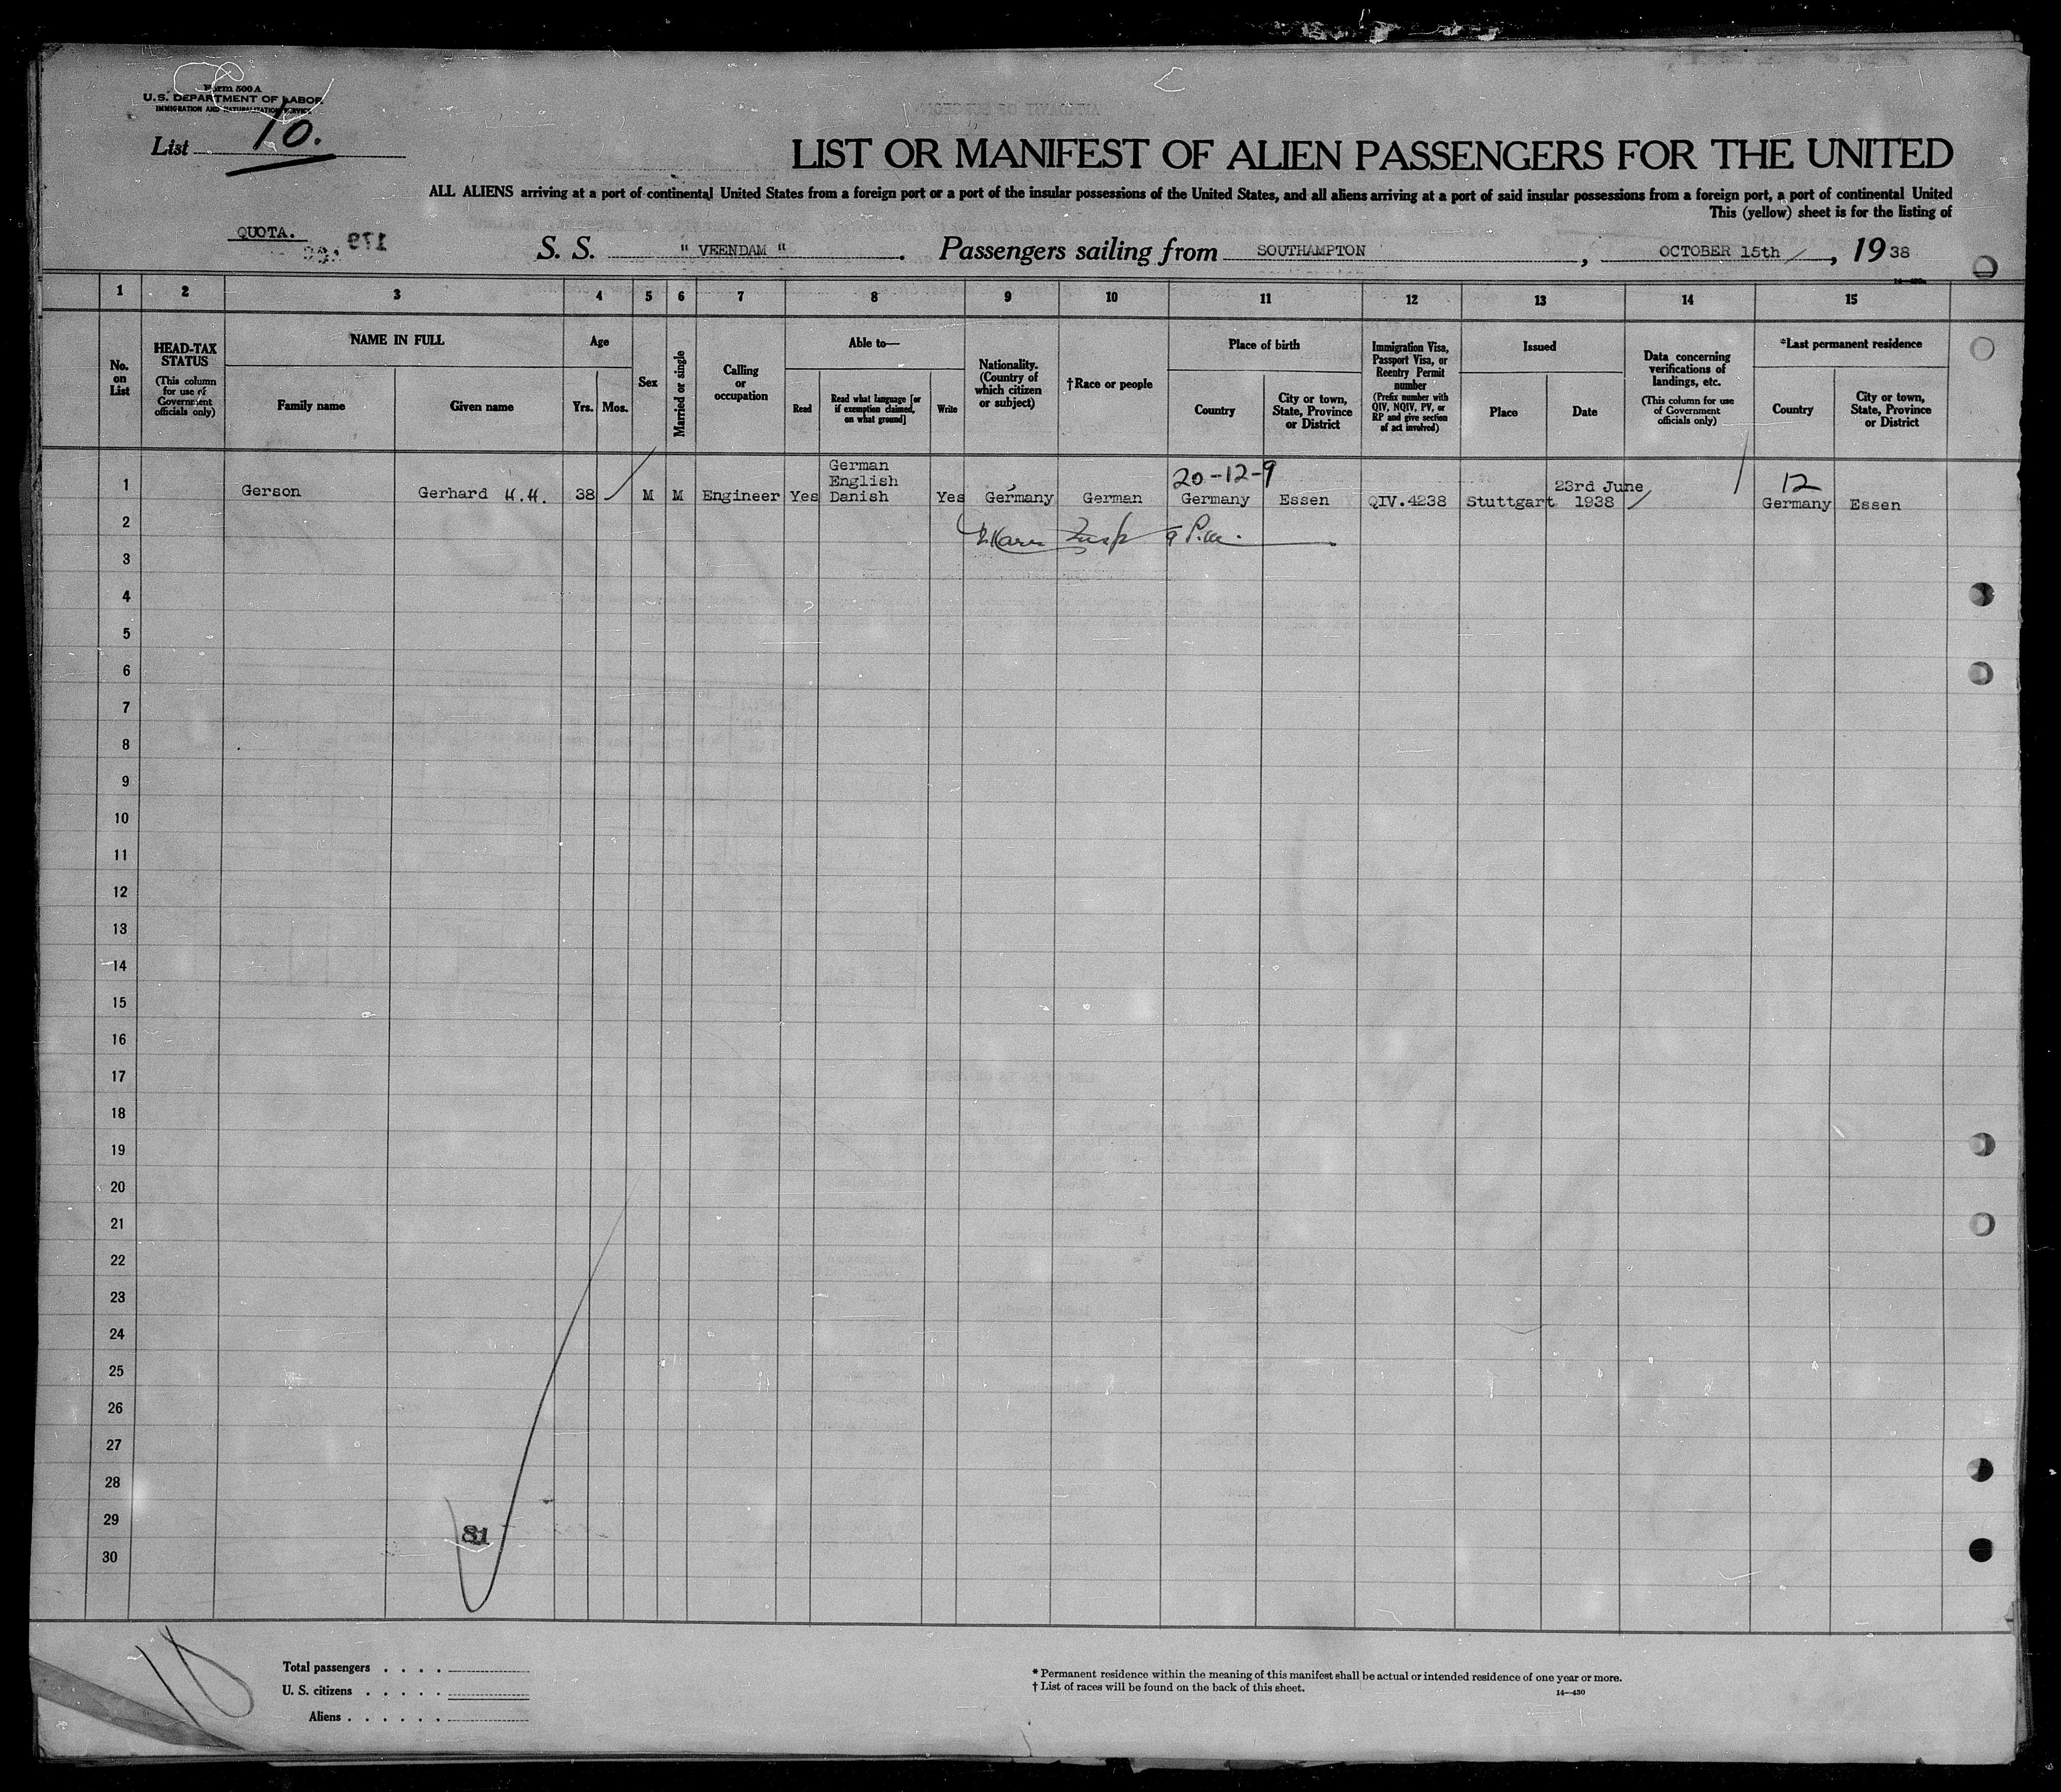 Form 500 A
U. S. DEPARTMENT OF LABOR
IMMIGRATION AND NATURALIZATION SERVICE
List 10.
LIST OR MANIFEST OF ALIEN PASSENGERS FOR THE UNITED
ALL ALIENS arriving at a port of continental United States from a foreign port or a port of the insular possessions of the United States, and all aliens arriving at a port of said insular possessions from a foreign port, a port of continental United
This (yellow) sheet is for the listing of
QUOTA. 179
S. S. " VEENDAM " . Passengers sailing from SOUTHAMPTON , OCTOBER 15th , 19 38
1 2 3 4 5 6 7 8 9 10 11 12 13 14 15
No. on List
HEAD-TAX STATUS
(This column for use of Government officials only)
NAME IN FULL
Family name
Given name
Age
Yrs. Mos.
Sex
Married or single
Calling or occupation
Able to—
Read
Read what language [or if exemption claimed, on what ground]
Write
Nationality. (Country of which citizen or subject)
†Race or people
Place of birth
Country
City or town, State, Province or District
Immigration Visa, Passport Visa, or Reentry Permit number
(Prefix number with QIV, NQIV, PV, or RP and give section of act involved)
Issued
Place
Date
Data concerning verifications of landings, etc.
(This column for use of Government officials only)
*Last permanent residence
Country
City or town, State, Province or District
1 Gerson Gerhard H.H. 38 M M Engineer Yes German English Danish Yes Germany German 20-12-9 Germany Essen QIV.4238 Stuttgart 23rd June 1938 12 Germany Essen
2
3
4
5
6
7
8
9
10
11
12
13
14
15
16
17
18
19
20
21
22
23
24
25
26
27
28
29
30
81
10
Total passengers . . . .
U. S. citizens . . . . .
Aliens . . . . . .
* Permanent residence within the meaning of this manifest shall be actual or intended residence of one year or more.
† List of races will be found on the back of this sheet.
14—430